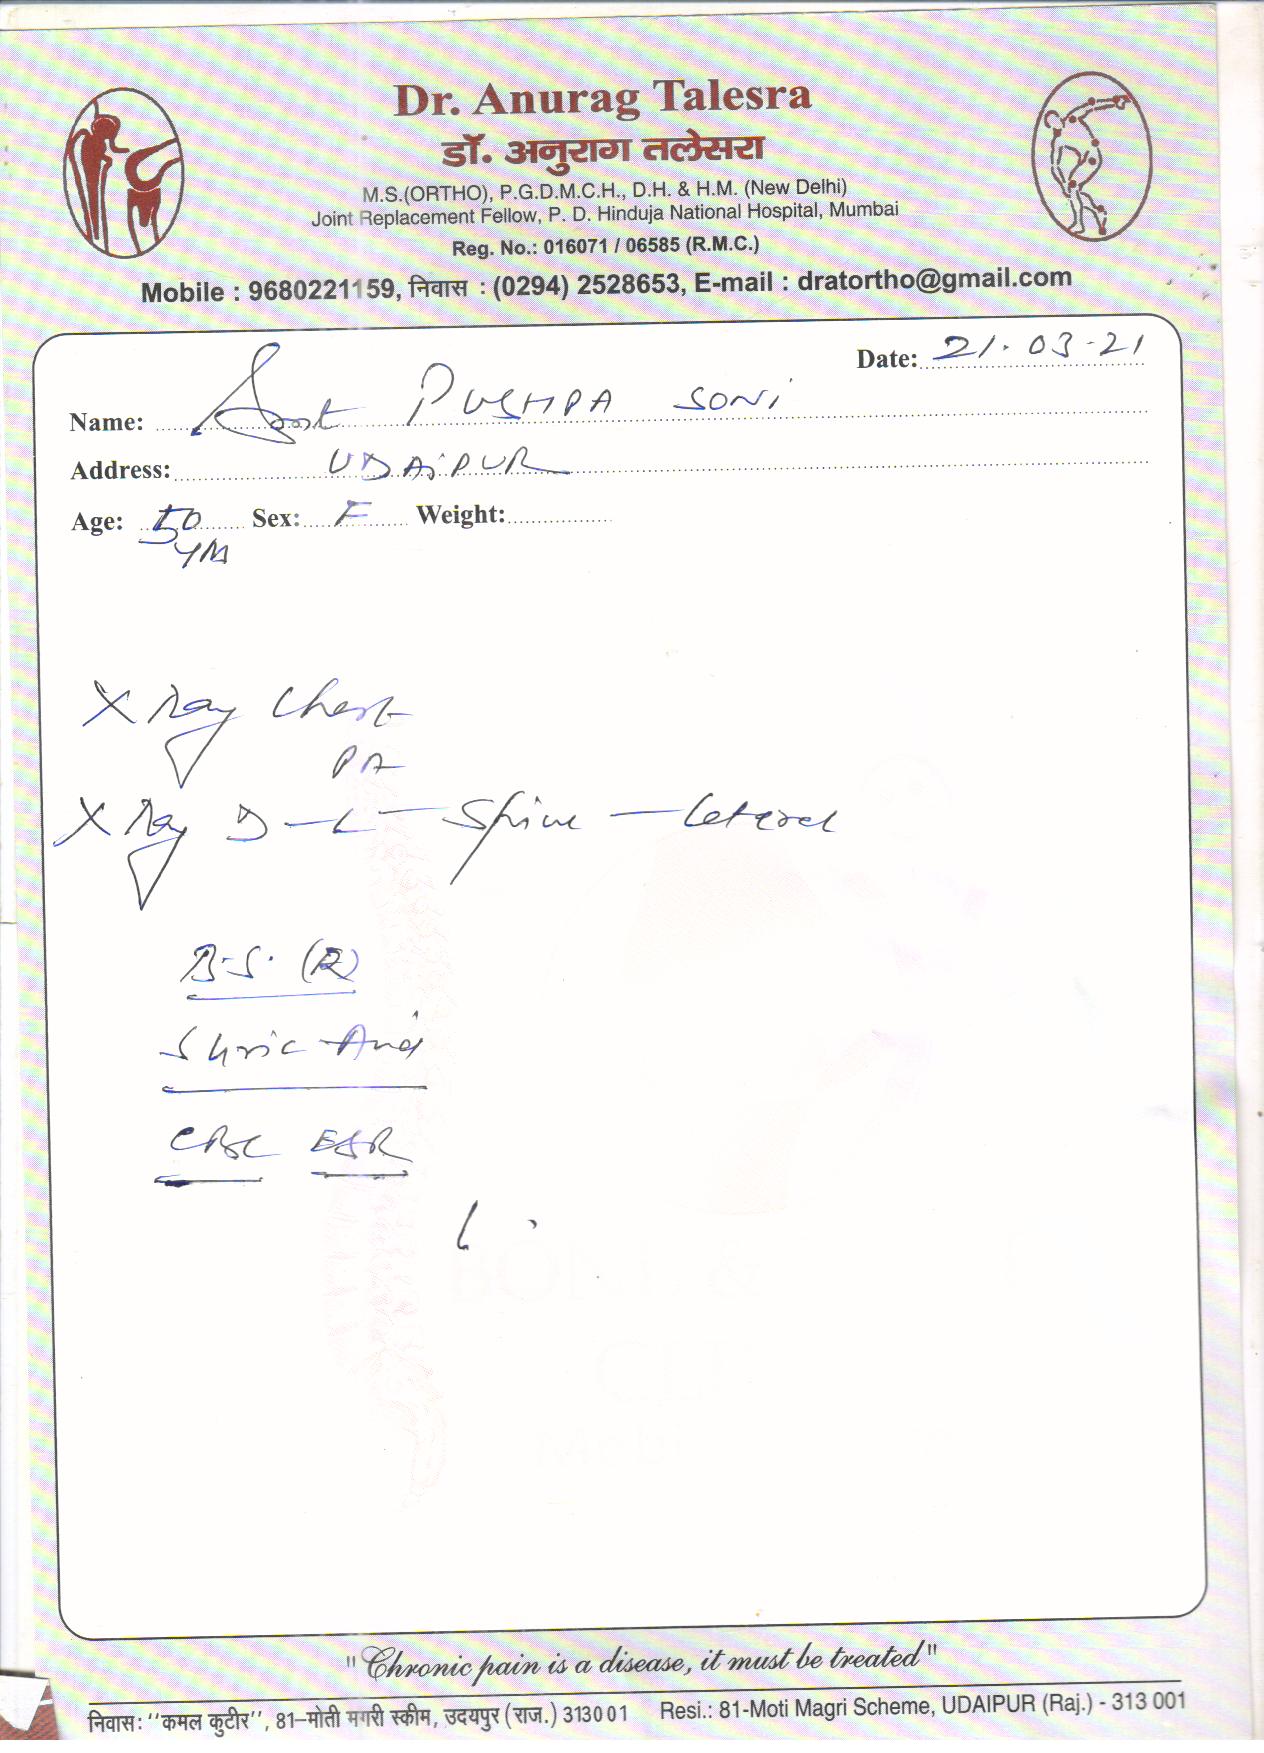 Dr. Anurag Talesra
डॉ. अनुराग तलेसरा
M.S.(ORTHO), P.G.D.M.C.H., D.H. & H.M. (New Delhi)
Joint Replacement Fellow, P. D. Hinduja National Hospital, Mumbai
Reg. No.: 016071 / 06585 (R.M.C.)
Mobile : 9680221159, निवास : (0294) 2528653, E-mail : dratortho@gmail.com
Date: 21.03.21
Name: Smt PUSHPA SONI
Address: UDAIPUR
Age: 50 Sex: F Weight:
X Ray Chest
PA
X Ray D-L-Spine-Lateral
B.S. (R)
S Uric Acid
CBC ESR
"Chronic pain is a disease, it must be treated"
निवास: ''कमल कुटीर'', 81-मोती मगरी स्कीम, उदयपुर (राज.) 313001 Resi.: 81-Moti Magri Scheme, UDAIPUR (Raj.) - 313 001